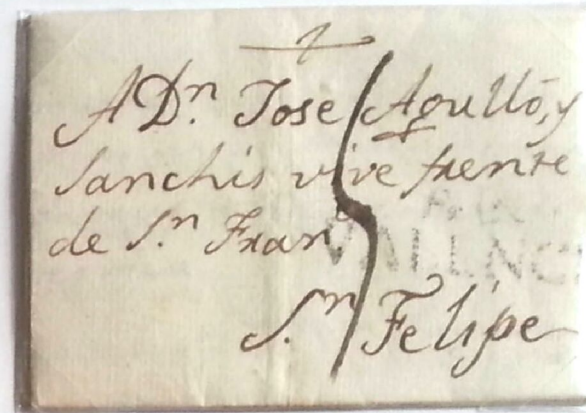 A Dn. Jose Agulló, y
Sanchis vive frente
de Sn. Fran
VALENC
Sn. Felipe